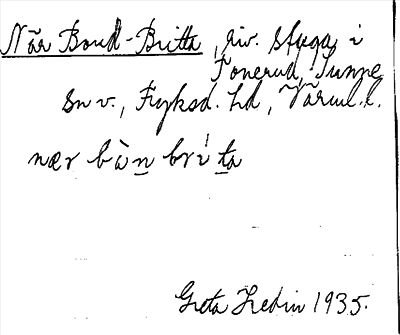 När Bond-Britta, riv. stuga, i
Tonerud, Sunne
sn v., Fryksd. hd, Värml. l.
nær bὰn brí ta
Greta Hedin 1935.